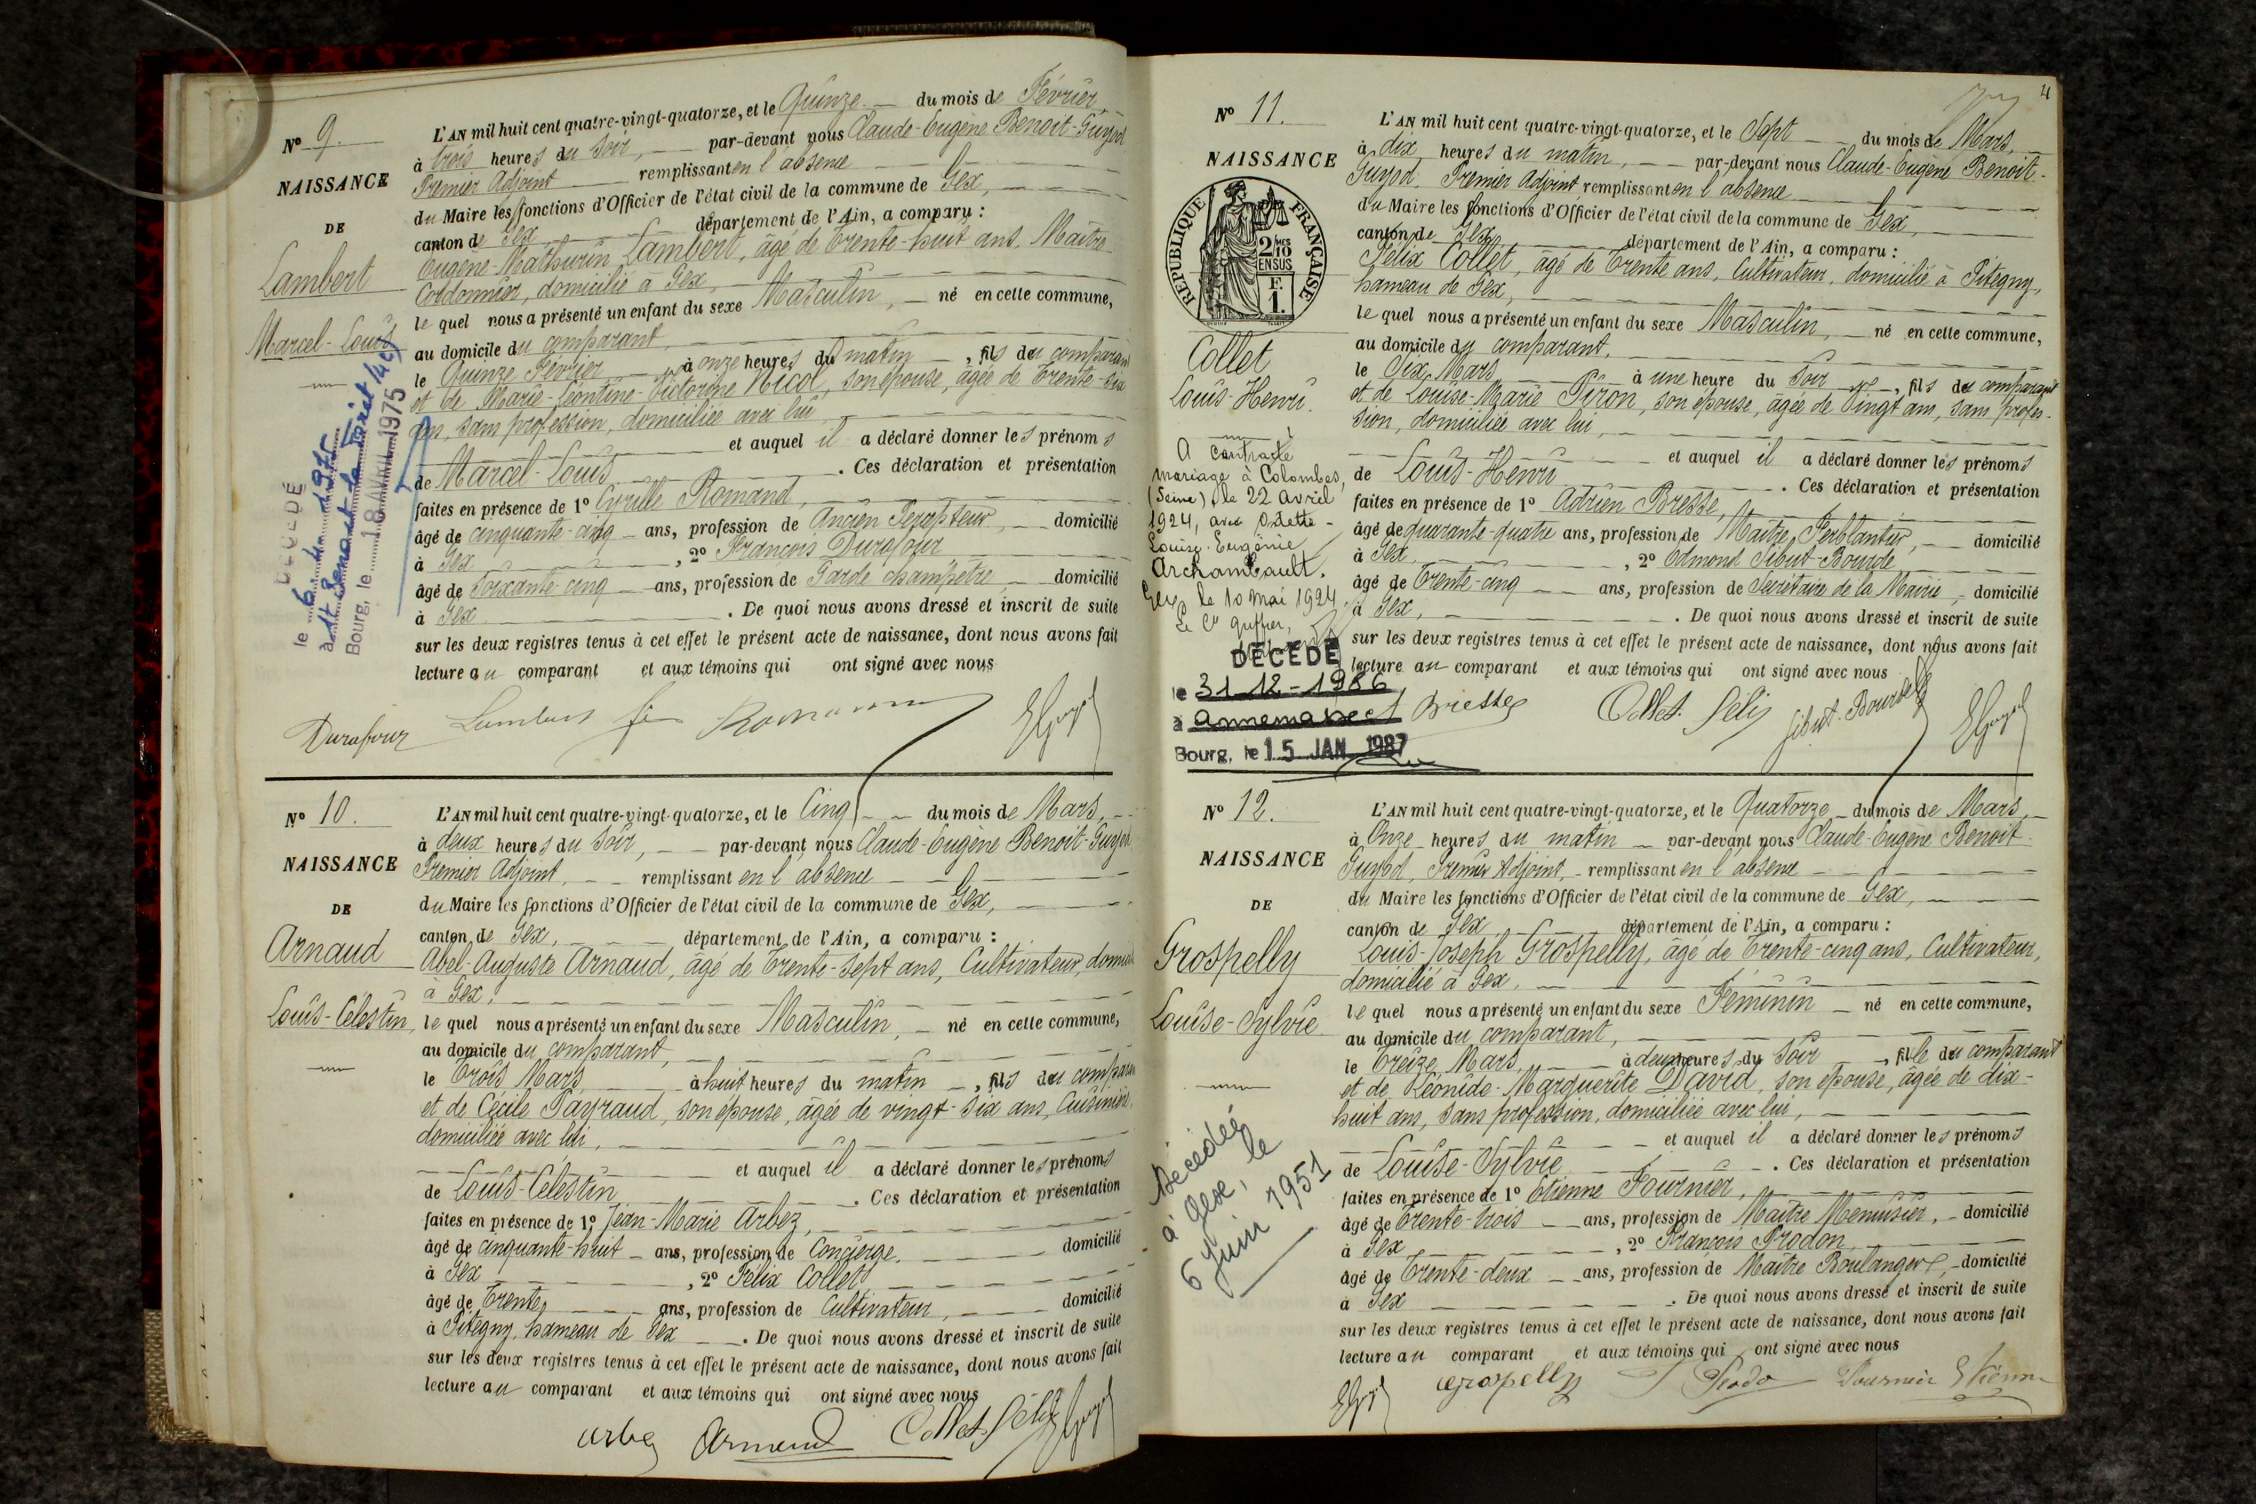 Nº 9.
NAISSANCE
DE
Lambert
Marcel-Louis
DÉCÉDÉ
le 6.4.1975
Bourg, le 18 AVRIL 1975
L'AN mil huit cent quatre-vingt-quatorze, et le Quinze du mois de Février
à trois heures du soir, par-devant nous Claude-Eugène Benoit-Guyod
Premier Adjoint remplissant en l'absence
du Maire les fonctions d'Officier de l'état civil de la commune de Gex,
canton de Gex département de l'Ain, a comparu :
Eugène-Mathurin Lambert, âgé de trente-huit ans, Maître
Cordonnier, domicilié à Gex,
le quel nous a présenté un enfant du sexe Masculin, né en cette commune,
au domicile du comparant,
le Quinze Février à onze heures du matin, fils du comparant
et de Marie-Léontine-Victorine Nicol, son épouse, âgée de trente-six
ans, sans profession, domiciliée avec lui,
et auquel il a déclaré donner les prénoms
de Marcel-Louis. Ces déclaration et présentation
faites en présence de 1º Cyrille Romand,
âgé de cinquante-cinq ans, profession de Ancien Percepteur, domicilié
à Gex, 2º François Durafour
âgé de soixante-cinq ans, profession de Garde champêtre domicilié
à Gex. De quoi nous avons dressé et inscrit de suite
sur les deux registres tenus à cet effet le présent acte de naissance, dont nous avons fait
lecture au comparant et aux témoins qui ont signé avec nous
Durafour Lambert Romand EGuyod
Nº 10.
NAISSANCE
DE
Arnaud
Louis-Célestin
L'AN mil huit cent quatre-vingt-quatorze, et le Cinq du mois de Mars,
à deux heures du soir, par-devant nous Claude-Eugène Benoit-Guyod
Premier Adjoint, remplissant en l'absence
du Maire les fonctions d'Officier de l'état civil de la commune de Gex,
canton de Gex, département de l'Ain, a comparu :
Abel-Auguste Arnaud, âgé de trente-sept ans, Cultivateur, domicilié
à Gex,
le quel nous a présenté un enfant du sexe Masculin, né en cette commune,
au domicile du comparant,
le trois Mars à huit heures du matin, fils du comparant
et de Cécile Payraud, son épouse, âgée de vingt-six ans, Cuisinière,
domiciliée avec lui,
et auquel il a déclaré donner les prénoms
de Louis-Célestin. Ces déclaration et présentation
faites en présence de 1º Jean-Marie Arbez,
âgé de cinquante-huit ans, profession de Concierge, domicilié
à Gex, 2º Félix Collet
âgé de trente ans, profession de Cultivateur, domicilié
à Pitegny, hameau de Gex. De quoi nous avons dressé et inscrit de suite
sur les deux registres tenus à cet effet le présent acte de naissance, dont nous avons fait
lecture au comparant et aux témoins qui ont signé avec nous
Arbez Arnaud Collet Félix EGuyod
4
Nº 11.
NAISSANCE
RÉPUBLIQUE FRANÇAISE
2/10 EN SUS
F. 1.
Collet
Louis-Henri
A contracté
mariage à Colombes,
(Seine), le 22 avril
1924, avec Odette-
Louise-Eugénie
Archambault.
Gex le 10 Mai 1924
Le Cis greffier,
DÉCÉDÉ
le 31-12-1986
à Annemasse
Bourg, le 15 JAN 1987
L'AN mil huit cent quatre-vingt-quatorze, et le Sept du mois de Mars,
à dix heures du matin, par-devant nous Claude-Eugène Benoit-
Guyod, Premier Adjoint remplissant en l'absence
du Maire les fonctions d'Officier de l'état civil de la commune de Gex,
canton de Gex, département de l'Ain, a comparu :
Félix Collet, âgé de trente ans, Cultivateur, domicilié à Pitegny,
hameau de Gex,
le quel nous a présenté un enfant du sexe Masculin, né en cette commune,
au domicile du comparant,
le Six Mars à une heure du soir, fils du comparant
et de Louise-Marie Piron, son épouse, âgée de vingt ans, sans profes-
sion, domiciliée avec lui,
et auquel il a déclaré donner les prénoms
de Louis-Henri. Ces déclaration et présentation
faites en présence de 1º Adrien Bresse,
âgé de quarante-quatre ans, profession de Maître Ferblantier, domicilié
à Gex, 2º Edmond Sibut-Bourde
âgé de trente-cinq ans, profession de Secrétaire de la Mairie, domicilié
à Gex,. De quoi nous avons dressé et inscrit de suite
sur les deux registres tenus à cet effet le présent acte de naissance, dont nous avons fait
lecture au comparant et aux témoins qui ont signé avec nous
A Bresse Collet Félix Sibut-Bourde EGuyod
Nº 12.
NAISSANCE
DE
Grospelly
Louise-Sylvie
Décédée
à Gex, le
6 juin 1951
L'AN mil huit cent quatre-vingt-quatorze, et le Quatorze du mois de Mars,
à Onze heures du matin par-devant nous Claude-Eugène Benoit-
Guyod, Premier Adjoint, remplissant en l'absence
du Maire les fonctions d'Officier de l'état civil de la commune de Gex,
canton de Gex, département de l'Ain, a comparu :
Louis-Joseph Grospelly, âgé de trente-cinq ans, Cultivateur,
domicilié à Gex,
le quel nous a présenté un enfant du sexe Féminin né en cette commune,
au domicile du comparant,
le treize Mars, à deux heures du soir, fille du comparant
et de Léonide-Marguerite David, son épouse, âgée de dix-
huit ans, sans profession, domiciliée avec lui,
et auquel il a déclaré donner les prénoms
de Louise-Sylvie. Ces déclaration et présentation
faites en présence de 1º Etienne Fournier,
âgé de trente-trois ans, profession de Maître Menuisier, domicilié
à Gex, 2º François Prodon,
âgé de trente-deux ans, profession de Maître Boulanger, domicilié
à Gex. De quoi nous avons dressé et inscrit de suite
sur les deux registres tenus à cet effet le présent acte de naissance, dont nous avons fait
lecture au comparant et aux témoins qui ont signé avec nous
EGuyod Grospelly Prodon Fournier Etienne